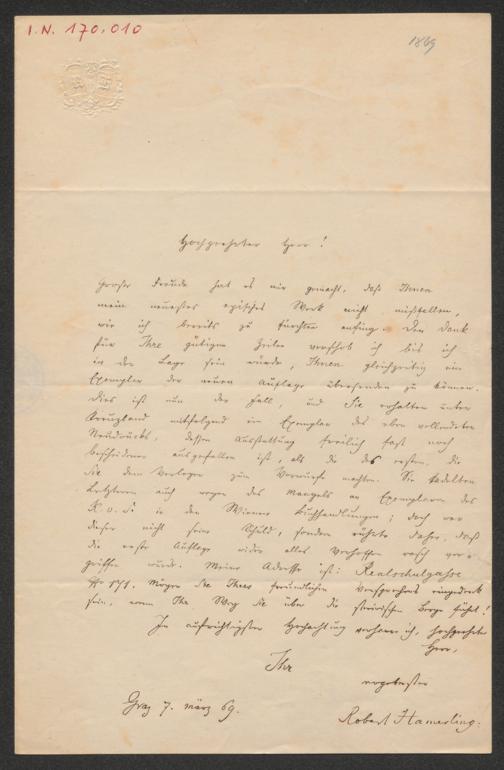 I.N. 170.010
1869
Hochgeehrter Herr!
Große Freude hat es mir gemacht, daß Ihnen
mein neuestes episches Werk nicht mißfallen,
wie ich bereits zu fürchten anfing. Den Dank
für Ihre gütigen Zeilen verschob ich bis ich
in der Lage sein würde, Ihnen gleichzeitig ein
Exemplar der neuen Auflage übersenden zu können.
Dies ist nun der Fall, und Sie erhalten unter
Kreuzband mitfolgend ein Exemplar des eben vollendeten
Neudrucks, dessen Ausstattung freilich fast noch
bescheidener ausgefallen ist, als die des ersten, die
Sie dem Verleger zum Vorwurfe machten. Sie tadelten
Letzteren auch wegen des Mangels an Exemplaren des
K. v. S. in den Wiener Buchhandlungen; doch war
dieser nicht seine Schuld, sondern rührte daher, daß
die erste Auflage wider alles Verhoffen rasch ver-
griffen wurde. Meine Adresse ist: Realschulgasse
No 571. Mögen Sie Ihres freundlichen Versprechens eingedenk
sein, wenn Ihr Weg Sie über die steirischen Berge führt!
In aufrichtigster Hochachtung verharre ich, hochgeehrter
Herr,
Ihr
ergebenster
Graz 7. März 69.
Robert Hamerling.